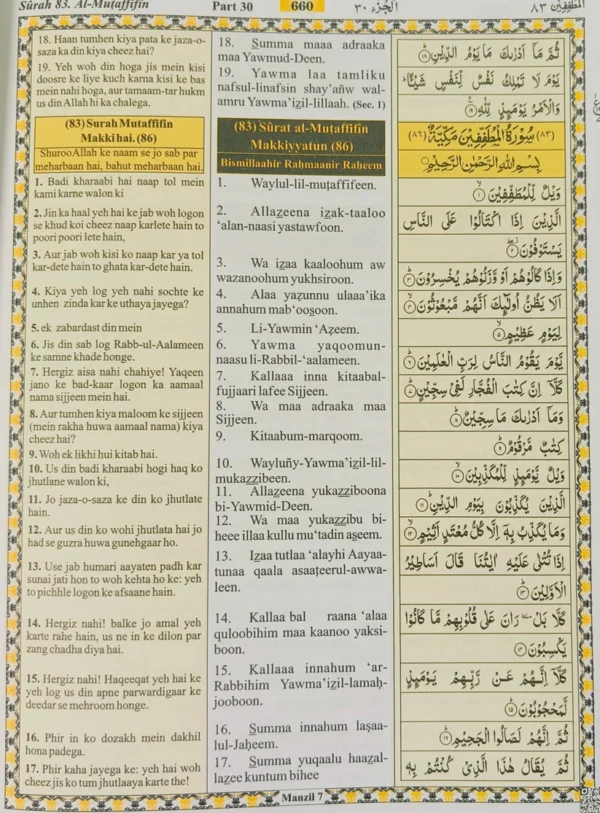 Sûrah 83. Al-Muṭaffifîn
Part 30
660
الْجُزْء ٣٠
الْمُطَفِّفِيْن ٨٣
18. Haan tumhen kiya pata ke jaza-o-
saza ka din kiya cheez hai?
19. Yeh woh din hoga jis mein kisi
doosre ke liye kuch karna kisi ke bas
mein nahi hoga, aur tamaam-tar hukm
us din Allah hi ka chalega.
(83) Surah Mutaffifin
Makki hai. (86)
Shuroo Allah ke naam se jo sab par
meharbaan hai, bahut meharbaan hai.
1. Badi kharaabi hai naap tol mein
kami karne walon ki
2. Jin ka haal yeh hai ke jab woh logon
se khud koi cheez naap kar lete hain to
poori poori lete hain,
3. Aur jab woh kisi ko naap kar ya tol
kar-dete hain to ghata kar-dete hain.
4. Kiya yeh log yeh nahi sochte ke
unhen zinda kar ke uthaya jayega?
5. ek zabardast din mein
6. Jis din sab log Rabb-ul-Aalameen
ke samne khade honge.
7. Hergiz aisa nahi chahiye! Yaqeen
jano ke bad-kaar logon ka aamaal
nama sijjeen mein hai.
8. Aur tumhen kiya maloom ke sijjeen
(mein rakha huwa aamaal nama) kiya
cheez hai?
9. Woh ek likhi hui kitab hai.
10. Us din badi kharaabi hogi haq ko
jhutlane walon ki,
11. Jo jaza-o-saza ke din ko jhutlate
hain.
12. Aur us din ko wohi jhutlata hai jo
had se guzra huwa gunehgaar ho.
13. Use jab humari aayaten padh kar
sunai jati hon to woh kehta ho ke: yeh
to pichhle logon ke afsaane hain.
14. Hergiz nahi! balke jo amal yeh
karte rahe hain, us ne in ke dilon par
zang chadha diya hai.
15. Hergiz nahi! Haqeeqat yeh hai ke
yeh log us din apne parwardigaar ke
deedar se mehroom honge.
16. Phir in ko dozakh mein dakhil
hona padega.
17. Phir kaha jayega ke: yeh hai woh
cheez jis ko tum jhutlaaya karte the!
18. S̲umma maaa adraaka
maa Yawmud-Deen.
19. Yawma laa tamliku
nafsul-linafsin shay'añw wal-
amru Yawma'iẕil-lillaah. (Sec. 1)
(83) Sûrat al-Muṭaffifîn
Makkiyyatun (86)
Bismillaahir Raḥmaanir Raḥeem
1. Waylul-lil-muṭaffifeen.
2. Allaẕeena iẕak-taaloo
'alan-naasi yastawfoon.
3. Wa iẕaa kaaloohum aw
wazanoohum yukhsiroon.
4. Alaa yaẓunnu ulaaa'ika
annahum mab'oos̲oon.
5. Li-Yawmin 'Aẓeem.
6. Yawma yaqoomun-
naasu li-Rabbil-'aalameen.
7. Kallaaa inna kitaabal-
fujjaari lafee Sijjeen.
8. Wa maa adraaka maa
Sijjeen.
9. Kitaabum-marqoom.
10. Wayluñy-Yawma'iẕil-lil-
mukaẕẕibeen.
11. Allaẕeena yukaẕẕiboona
bi-Yawmid-Deen.
12. Wa maa yukaẕẕibu bi-
heee illaa kullu mu'tadin as̲eem.
13. Iẕaa tutlaa 'alayhi Aayaa-
tunaa qaala asaaṭeerul-awwa-
leen.
14. Kallaa bal raana 'alaa
quloobihim maa kaanoo yaksi-
boon.
15. Kallaaa innahum 'ar-
Rabbihim Yawma'iẕil-lamaḥ-
jooboon.
16. S̲umma innahum laṣaa-
lul-Jaḥeem.
17. S̲umma yuqaalu haaẕal-
laẕee kuntum bihee
ثُمَّ مَاۤ اَدْرٰىكَ مَا يَوْمُ الدِّيْنِؕ ۝١٨
يَوْمَ لَا تَمْلِكُ نَفْسٌ لِّنَفْسٍ شَيْـًٔاؕ
وَالْاَمْرُ يَوْمَىِٕذٍ لِّلّٰهِ ۝١٩
(٨٣) سُوْرَةُ الْمُطَفِّفِيْنَ مَكِّيَّةٌ (٨٦)
بِسْمِ اللّٰهِ الرَّحْمٰنِ الرَّحِيْمِ
وَيْلٌ لِّلْمُطَفِّفِيْنَ ۝١
الَّذِيْنَ اِذَا اكْتَالُوْا عَلَى النَّاسِ
يَسْتَوْفُوْنَ ۝٢
وَاِذَا كَالُوْهُمْ اَوْ وَّزَنُوْهُمْ يُخْسِرُوْنَ ۝٣
اَلَا يَظُنُّ اُولٰٓىِٕكَ اَنَّهُمْ مَّبْعُوْثُوْنَ ۝٤
لِيَوْمٍ عَظِيْمٍ ۝٥
يَّوْمَ يَقُوْمُ النَّاسُ لِرَبِّ الْعٰلَمِيْنَ ۝٦
كَلَّاۤ اِنَّ كِتٰبَ الْفُجَّارِ لَفِيْ سِجِّيْنٍ ۝٧
وَمَاۤ اَدْرٰىكَ مَا سِجِّيْنٌ ۝٨
كِتٰبٌ مَّرْقُوْمٌ ۝٩
وَيْلٌ يَّوْمَىِٕذٍ لِّلْمُكَذِّبِيْنَ ۝١٠
الَّذِيْنَ يُكَذِّبُوْنَ بِيَوْمِ الدِّيْنِ ۝١١
وَمَا يُكَذِّبُ بِهٖۤ اِلَّا كُلُّ مُعْتَدٍ اَثِيْمٍ ۝١٢
اِذَا تُتْلٰى عَلَيْهِ اٰيٰتُنَا قَالَ اَسَاطِيْرُ
الْاَوَّلِيْنَ ۝١٣
كَلَّا بَلْ ٚ رَانَ عَلٰى قُلُوْبِهِمْ مَّا كَانُوْا
يَكْسِبُوْنَ ۝١٤
كَلَّاۤ اِنَّهُمْ عَنْ رَّبِّهِمْ يَوْمَىِٕذٍ
لَّمَحْجُوْبُوْنَ ۝١٥
ثُمَّ اِنَّهُمْ لَصَالُوا الْجَحِيْمِ ۝١٦
ثُمَّ يُقَالُ هٰذَا الَّذِيْ كُنْتُمْ بِهٖ
Manzil 7